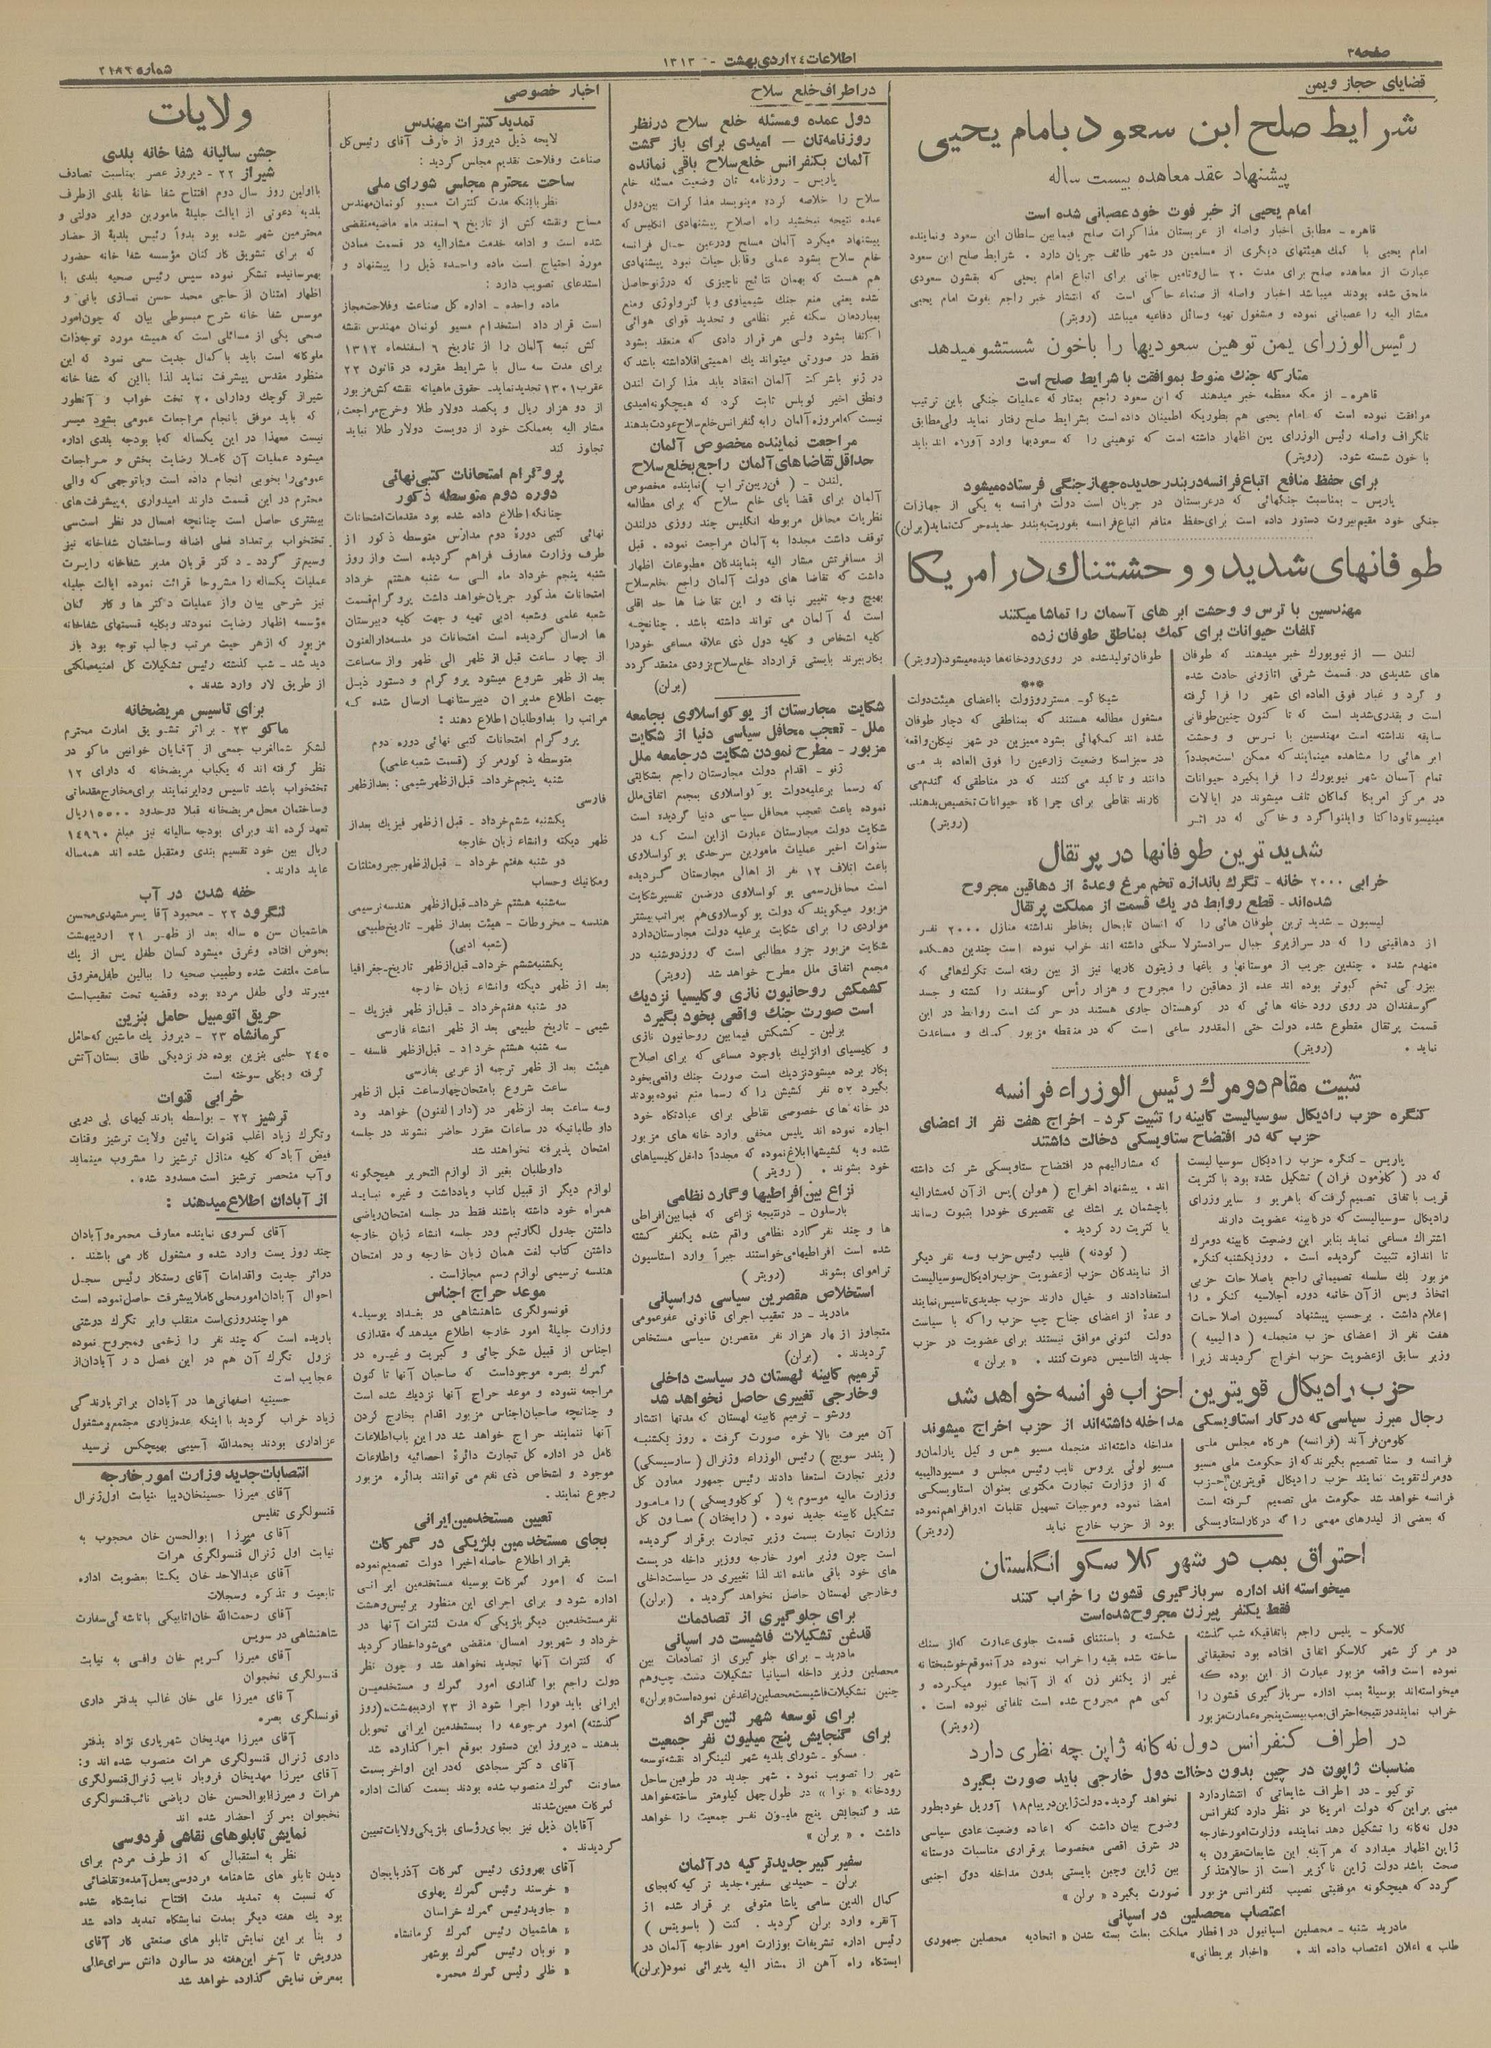 صفحه ۳
اطلاعات ۲۴ اردی بهشت - ۱۳۱۳
شماره ۲۱۸۶
قضایای حجاز و یمن
شرایط صلح ابن سعود با امام یحیی
پیشنهاد عقد معاهده بیست ساله
امام یحیی از خبر فوت خود عصبانی شده است
قاهره ـ مطابق اخبار واصله از عربستان مذاکرات صلح فیمابین سلطان ابن سعود و نماینده
امام یحیی با کمک هیئتهای دیگری از مسلمین در شهر طائف جریان دارد . شرایط صلح ابن سعود
عبارت از معاهده صلح برای مدت ۲۰ سال و تامین جانی برای اتباع امام یحیی که بقشون سعودی
ملحق شده بودند میباشد اخبار واصله از صنعاء حاکی است که انتشار خبر راجع بفوت امام یحیی
مشار الیه را عصبانی نموده و مشغول تهیه وسائل دفاعیه میباشد (رویتر)
رئیس الوزرای یمن توهین سعودیها را باخون شستشو میدهد
متارکه جنك منوط بموافقت با شرایط صلح است
قاهره ـ از مکه معظمه خبر میدهند که ابن سعود راجع بمتارکه عملیات جنگی باین ترتیب
موافقت نموده است که امام یحیی هم بطوریکه اطمینان داده است بشرایط صلح رفتار نماید ولی مطابق
تلگراف واصله رئیس الوزرای یمن اظهار داشته است که توهینی را که سعودیها وارد آورده اند باید
با خون شسته شود. (رویتر)
برای حفظ منافع اتباع فرانسه در بندر حدیده جهاز جنگی فرستاده میشود
پاریس ـ بمناسبت جنگهائی که در عربستان در جریان است دولت فرانسه به یکی از جهازات
جنگی خود مقیم بیروت دستور داده است برای حفظ منافع اتباع فرانسه بفوریت به بندر حدیده حرکت نماید (برلن)
طوفانهای شدید و وحشتناك در امریکا
مهندسین با ترس و وحشت ابر های آسمان را تماشا میکنند
تلفات حیوانات برای کمك بمناطق طوفان زده
لندن — از نیویورك خبر میدهند که طوفان
های شدیدی در قسمت شرقی اتازونی حادث شده
و گرد و غبار فوق العاده ای شهر را فرا گرفته
است و بقدری شدید است که تا کنون چنین طوفانی
سابقه نداشته است مهندسین با ترس و وحشت
ابر هائی را مشاهده مینمایند که ممکن است مجدداً
تمام آسمان شهر نیویورك را فرا بگیرد حیوانات
در مرکز امریکا کماکان تلف میشوند در ایالات
مینیسوتا و داکتا و ایلنوا گرد و خاکی که در اثر
طوفان تولید شده در روی رودخانه ها دیده میشود. (رویتر)
***
شیکاگو ـ مستر روزولت با اعضای هیئت دولت
مشغول مطالعه هستند که بمناطقی که دچار طوفان
شده اند کمکهائی بشود ممیزین در شهر نیکان واقعه
در سبزاسکا وضعیت زارعین را فوق العاده بد می
دانند و تاکید می کنند که در مناطقی که گندم می
کارند نقاطی برای چراگاه حیوانات تخصیص بدهند.
(رویتر)
شدید ترین طوفانها در پرتقال
خرابی ۲۰۰۰ خانه ـ تگرك باندازه تخم مرغ وعدهٔ از دهاقین مجروح
شده اند ـ قطع روابط در یك قسمت از مملکت پرتقال
لیسبون ـ شدید ترین طوفان هائی را که انسان تا بحال بخاطر نداشته منازل ۲۰۰۰ نفر
از دهاقینی را که در سرازیری جبال سرادسترلا سکنی داشته اند خراب نموده است چندین دهکده
منهدم شده . چندین جریب از موستانها و باغها و زیتون کاریها نیز از بین رفته است تگرك هائی که
ببزرگی تخم کبوتر بوده اند عده از دهاقین را مجروح و هزار رأس گوسفند را کشته و جسد
گوسفندان در روی رود خانه هائی که در کوهستان جاری هستند در حرکت است روابط در این
قسمت پرتقال مقطوع شده دولت حتی المقدور ساعی است که در منطقه مزبور کمك و مساعدت
نماید . (رویتر)
تثبیت مقام دومرك رئیس الوزراء فرانسه
کنگره حزب رادیکال سوسیالیست کابینه را تثبیت کرد - اخراج هفت نفر از اعضای
حزب که در افتضاح ستاویسکی دخالت داشتند
پاریس ـ کنگره حزب رادیکال سوسیالیست
که در ( کلرمون فران ) تشکیل شده بود با کثریت
قریب باتفاق تصمیم گرفت که باهریو و سایر وزرای
رادیکال سوسیالیست که در کابینه عضویت دارند
اشتراك مساعی نماید بنابر این وضعیت کابینه دومرك
تا اندازه تثبیت گردیده است . روز یکشنبه کنگره
مزبور یك سلسله تصمیماتی راجع باصلاحات حزبی
اتخاذ و پس از آن خاتمه دوره اجلاسیه کنگره را
اعلام داشت . برحسب پیشنهاد کمسیون اصلاحات
هفت نفر از اعضای حزب منجمله ( دالیمیه )
وزیر سابق از عضویت حزب اخراج گردیدند زیرا
که مشارالیهم در افتضاح ستاویسکی شرکت داشته
اند . پیشنهاد اخراج ( هولن ) پس از آن که مشارالیه
باچشمان پر اشك بی تقصیری خود را بثبوت رساند
با کثریت رد گردید .
( کودنه ) فلیپ رئیس حزب وسه نفر دیگر
از نمایندگان حزب از عضویت حزب رادیکال سوسیالیست
استعفا دادند و خیال دارند حزب جدیدی تاسیس نمایند
و عدهٔ از اعضای جناح چپ حزب را که با سیاست
دولت کنونی موافق نیستند برای عضویت در حزب
جدید التاسیس دعوت کنند . « برلن »
حزب رادیکال قویترین احزاب فرانسه خواهد شد
رجال مبرز سیاسی که در کار استاویسکی مداخله داشته اند از حزب اخراج میشوند
کلومن فرآند (فرانسه) هرگاه مجلس ملی
فرانسه و سنا تصمیم بگیرند که از حکومت ملی مسیو
دومرك تقویت نمایند حزب رادیکال قویترین حزب
فرانسه خواهد شد حکومت ملی تصمیم گرفته است
که بعضی از لیدرهای مهمی را که در کار استاویسکی
مداخله داشته اند منجمله مسیو هس و کیل پارلمان و
مسیو لوئی پروس نایب رئیس مجلس و مسیو دالیمیه
که از وزارت تجارت مکتوبی بعنوان استاویسکی
امضا نموده و موجبات تسهیل تقلبات او را فراهم نموده
بود از حزب خارج نماید (رویتر)
احتراق بمب در شهر کلاسکو انگلستان
میخواسته اند اداره سربازگیری قشون را خراب کنند
فقط یکنفر پیرزن مجروح شده است
کلاسکو ـ پلیس راجع باتفاقیکه شب گذشته
در مرکز شهر کلاسکو اتفاق افتاده بود تحقیقاتی
نموده است واقعه مزبور عبارت از این بوده که
میخواسته اند بوسیلهٔ بمب اداره سربازگیری قشون را
خراب نمایند در نتیجه احتراق بمب بیست پنجره عمارت مزبور
شکسته و باستثنای قسمت جلوی عمارت که از سنك
ساخته شده بقیه را خراب نموده در آنموقع خوشبختانه
غیر از یکنفر زن که از آنجا عبور میکرده و
کمی هم مجروح شده است تلفاتی نبوده است .
(رویتر)
در اطراف کنفرانس دول نه گانه ژاپن چه نظری دارد
مناسبات ژاپون در چین بدون دخالت دول خارجی باید صورت بگیرد
توکیو ـ در اطراف شایعاتی که انتشار دارد
مبنی براین که دولت امریکا در نظر دارد کنفرانس
دول نه گانه را تشکیل دهد نماینده وزارت امور خارجه
ژاپن اظهار میدارد که هر آینه این شایعات مقرون به
صحت باشد دولت ژاپن ناگزیر است از حالا متذکر
گردد که هیچگونه موفقیتی نصیب کنفرانس مزبور
نخواهد گردید . دولت ژاپن در پیام ۱۸ آوریل خود بطور
وضوح بیان داشت که اعاده وضعیت عادی سیاسی
در شرق اقصی مخصوصا برقراری مناسبات دوستانه
بین ژاپن و چین بایستی بدون مداخله دول اجنبی
صورت بگیرد « برلن »
اعتصاب محصلین در اسپانی
مادرید شنبه ـ محصلین اسپانیول در اقطار مملکت بعلت بسته شدن « اتحادیه محصلین جمهوری
طلب » اعلان اعتصاب داده اند . «اخبار بریطانی»
در اطراف خلع سلاح
دول عمده و مسئله خلع سلاح در نظر
روزنامه تان — امیدی برای باز گشت
آلمان بکنفرانس خلع سلاح باقی نمانده
پاریس ـ روزنامه تان وضعیت مسئله خلع
سلاح را خلاصه کرده مینویسد مذاکرات بین دول
عمده نتیجه نبخشید راه اصلاح پیشنهادی انگلیس که
پیشنهاد میکرد آلمان مسلح و در عین حال فرانسه
خلع سلاح بشود عملی و قابل حیات نبود پیشنهادی
هم هست که بهمان نتائج ناچیزی که در ژنو حاصل
شده یعنی منع جنك شیمیاوی و با کترولوژی و منع
بمباردمان سکنه غیر نظامی و تحدید قوای هوائی
اکتفا بشود ولی هر قرار دادی که منعقد بشود
فقط در صورتی میتواند یك اهمیتی اقلا داشته باشد که
در ژنو باشرکت آلمان انعقاد یابد مذاکرات لندن
ونطق اخیر لوبلس ثابت کرد که هیچگونه امیدی
نیست که امروزه آلمان را به کنفرانس خلع سلاح عودت بدهند
مراجعت نماینده مخصوص آلمان
حداقل تقاضاهای آلمان راجع بخلع سلاح
لندن ـ ( فن ریبن تراپ ) نماینده مخصوص
آلمان برای قضایای خلع سلاح که برای مطالعه
نظریات محافل مربوطه انگلیس چند روزی در لندن
توقف داشت مجددا به آلمان مراجعت نموده . قبل
از مسافرتش مشار الیه بنمایندگان مطبوعات اظهار
داشت که تقاضا های دولت آلمان راجع بخلع سلاح
بهیچ وجه تغییر نیافته و این تقاضا ها حد اقلی
است که آلمان می تواند داشته باشد . چنانچه
کلیه اشخاص و کلیه دول ذی علاقه مساعی خود را
بکار ببرند بایستی قرارداد خلع سلاح بزودی منعقد گردد
(برلن)
شکایت مجارستان از یوکواسلاوی بجامعه
ملل - تعجب محافل سیاسی دنیا از شکایت
مزبور - مطرح نمودن شکایت در جامعه ملل
ژنو ـ اقدام دولت مجارستان راجع بشکایتی
که رسما بر علیه دولت یوکواسلاوی بمجمع اتفاق ملل
نموده باعث تعجب محافل سیاسی دنیا گردیده است
شکایت دولت مجارستان عبارت از این است که در
سنوات اخیر عملیات مامورین سرحدی یوکواسلاوی
باعث اتلاف ۱۲ نفر از اهالی مجارستان گردیده
است محافل رسمی یوکواسلاوی در ضمن تفسیر شکایت
مزبور میگویند که دولت یوکوسلاوی هم بمراتب بیشتر
مواردی را برای شکایت بر علیه دولت مجارستان دارد
شکایت مزبور جزو مطالبی است که روز دوشنبه در
مجمع اتفاق ملل مطرح خواهد شد (رویتر)
کشمکش روحانیون نازی و کلیسیا نزدیك
است صورت جنك واقعی بخود بگیرد
برلین ـ کشمکش فیمابین روحانیون نازی
و کلیسیای اوانژلیك باوجود مساعی که برای اصلاح
بکار برده میشود نزدیك است صورت جنك واقعی بخود
بگیرد ۵۲ نفر کشیش را که رسما منع نموده بودند
در خانه های خصوصی نقاطی برای عبادتگاه خود
اجاره نموده اند پلیس مخفی وارد خانه های مزبور
شده و به کشیشها ابلاغ نموده که مجدداً داخل کلیسیاهای
خود بشوند . (رویتر)
نزاع بین افراطیها و گارد نظامی
بارسلون ـ در نتیجه نزاعی که فیمابین افراطی
ها و چند نفر گارد نظامی واقع شده یکنفر کشته
شده است افراطیها میخواستند جبراً وارد استاسیون
تراموای بشوند (رویتر)
استخلاص مقصرین سیاسی در اسپانی
مادرید ـ در تعقیب اجرای قانونی عفو عمومی
متجاوز از چهار هزار نفر مقصرین سیاسی مستخلص
گردیدند . (برلن)
ترمیم کابینه لهستان در سیاست داخلی
و خارجی تغییری حاصل نخواهد شد
ورشو ـ ترمیم کابینه لهستان که مدتها انتشار
آن میرفت بالاخره صورت گرفت . روز یکشنبه
(یندر سویچ) رئیس الوزراء و ژنرال (سارسیسکی)
وزیر تجارت استعفا دادند رئیس جمهور معاون کل
وزارت مالیه موسوم به ( کوکلوویسکی ) را مامور
تشکیل کابینه جدید نمود . (رایختان) معاون کل
وزارت تجارت بسمت وزیر تجارت برقرار گردیده
است چون وزیر امور خارجه و وزیر داخله در پست
های خود باقی مانده اند لذا تغییری در سیاست داخلی
و خارجی لهستان حاصل نخواهد گردید . (برلن)
برای جلوگیری از تصادمات
قدغن تشکیلات فاشیست در اسپانی
مادرید ـ برای جلو گیری از تصادمات بین
محصلین وزیر داخله اسپانیا تشکیلات دست چپ و هم
چنین تشکیلات فاشیست محصلین را غدغن نموده است «برلن»
برای توسعه شهر لنین گراد
برای گنجایش پنج میلیون نفر جمعیت
مسکو ـ شورای بلدیه شهر لنینگراد نقشه توسعه
شهر را تصویب نمود . شهر جدید در طرفین ساحل
رودخانه « نوا » در طول چهل کیلومتر ساخته خواهد
شد و گنجایش پنج ملیون نفر جمعیت را خواهد
داشت . « برلن »
سفیر کبیر جدید ترکیه در آلمان
برلن ـ حمیدبی سفیر جدید ترکیه که بجای
کمال الدین سامی پاشا متوفی بر قرار شده از
آنقره وارد برلن گردید . کنت ( باسویتس )
رئیس اداره تشریفات بوزارت امور خارجه آلمان در
ایستگاه راه آهن از مشار الیه پذیرائی نمود (برلن)
اخبار خصوصی
تمدید کنترات مهندس
لایحه ذیل دیروز از طرف آقای رئیس کل
صناعت و فلاحت تقدیم مجلس گردید :
ساحت محترم مجلس شورای ملی
نظر باینکه مدت کنترات مسیو لونمان مهندس
مساح ونقشه کش از تاریخ ۶ اسفند ماه ماضیه منقضی
شده است و ادامه خدمت مشارالیه در قسمت معادن
مورد احتیاج است ماده واحده ذیل را پیشنهاد و
استدعای تصویب دارد :
ماده واحده ـ اداره کل صناعت و فلاحت مجاز
است قرار داد استخدام مسیو لونمان مهندس نقشه
کش تبعه آلمان را از تاریخ ۶ اسفند ماه ۱۳۱۲
برای مدت سه سال با شرایط مقرره در قانون ۲۳
عقرب ۱۳۰۱ تجدید نماید ـ حقوق ماهیانه نقشه کش مزبور
از دو هزار ریال و یکصد دولار طلا و خرج مراجعت
مشار الیه به مملکت خود از دویست دولار طلا نباید
تجاوز کند
پروگرام امتحانات کتبی نهائی
دوره دوم متوسطه ذکور
چنانکه اطلاع داده شده بود مقدمات امتحانات
نهائی کتبی دورهٔ دوم مدارس متوسطه ذکور از
طرف وزارت معارف فراهم گردیده است و از روز
شنبه پنجم خرداد ماه الی سه شنبه هشتم خرداد
امتحانات مذکور جریان خواهد داشت پروگرام قسمت
شعبه علمی و شعبه ادبی تهیه و جهت کلیه دبیرستان
ها ارسال گردیده است امتحانات در مدرسه دارالفنون
از چهار ساعت قبل از ظهر الی ظهر و از سه ساعت
بعد از ظهر شروع میشود پروگرام و دستور ذیل
جهت اطلاع مدیران دبیرستانها ارسال شده که
مراتب را بداوطلبان اطلاع دهند :
پروگرام امتحانات کتبی نهائی دوره دوم
متوسطه ذکور مرکز (قسمت شعبه علمی)
شنبه پنجم خرداد ـ قبل از ظهر شیمی : بعد از ظهر
فارسی
یکشنبه ششم خرداد ـ قبل از ظهر فیزیك بعد از
ظهر دیکته و انشاء زبان خارجه
دو شنبه هفتم خرداد ـ قبل از ظهر جبر و مثلثات
و مکانیك و حساب
سه شنبه هشتم خرداد ـ قبل از ظهر هندسه ترسیمی
هندسه ـ مخروطات ـ هیئت بعد از ظهر ـ تاریخ طبیعی
(شعبه ادبی)
یکشنبه ششم خرداد ـ قبل از ظهر تاریخ ـ جغرافیا
بعد از ظهر دیکته و انشاء زبان خارجه
دو شنبه هفتم خرداد ـ قبل از ظهر فیزیك ـ
شیمی ـ تاریخ طبیعی بعد از ظهر انشاء فارسی
سه شنبه هشتم خرداد ـ قبل از ظهر فلسفه ـ
هیئت بعد از ظهر ترجمه از عربی بفارسی
ساعت شروع بامتحان چهار ساعت قبل از ظهر
وسه ساعت بعد از ظهر در (دار الفنون) خواهد بود
داوطلبانیکه در ساعات مقرر حاضر نشوند در جلسه
امتحان پذیرفته نخواهند شد
داوطلبان بغیر از لوازم التحریر هیچگونه
لوازم دیگر از قبیل کتاب و یادداشت و غیره نباید
همراه خود داشته باشند فقط در جلسه امتحان ریاضی
داشتن جدول لگاریتم و در جلسه انشاء زبان خارجه
داشتن کتاب لغت همان زبان خارجه و در امتحان
هندسه ترسیمی لوازم رسم مجاز است.
موعد حراج اجناس
قونسولگری شاهنشاهی در بغداد بوسیله
وزارت جلیلهٔ امور خارجه اطلاع میدهد که مقداری
اجناس از قبیل شکر چائی و کبریت و غیره در
گمرك بصره موجود است که صاحبان آنها تا کنون
مراجعه ننموده و موعد حراج آنها نزدیك شده است
و چنانچه صاحبان اجناس مزبور اقدام بخارج کردن
آنها ننمایند حراج خواهد شد در این باب اطلاعات
کامل در اداره کل تجارت دائرهٔ احصائیه و اطلاعات
موجود و اشخاص ذی نفع می توانند بدائره مزبور
رجوع نمایند .
تعیین مستخدمین ایرانی
بجای مستخدمین بلژیکی در گمرکات
بقرار اطلاع حاصله اخیراً دولت تصمیم نموده
است که امور گمرکات بوسیله مستخدمین ایرانی
اداره شود و برای اجرای این منظور برئیس و هشت
نفر مستخدمین دیگر بلژیکی که مدت کنترات آنها در
خرداد و شهریور امسال منقضی می شود اخطار گردید
که کنترات آنها تجدید نخواهد شد و چون نظر
دولت راجع بواگذاری امور گمرك و مستخدمین
ایرانی باید فورا اجرا شود از ۲۳ اردیبهشت (روز
گذشته) امور مرجوعه را بمستخدمین ایرانی تحویل
بدهند ـ دیروز این دستور بموقع اجرا گذارده شد
آقای دکتر سجادی که در این اواخر بسمت
معاونت گمرك منصوب شده بودند بسمت کفالت اداره
گمرکات معین شدند
آقایان ذیل نیز بجای رؤسای بلژیکی ولایات تعیین
گردیدند .
آقای بهروزی رئیس گمرکات آذربایجان
« خرسند رئیس گمرك پهلوی
« جاوید رئیس گمرك خراسان
« هاشمیان رئیس گمرك کرمانشاه
« نوبان رئیس گمرك بوشهر
« ظلی رئیس گمرك محمره.
ولایات
جشن سالیانه شفاخانه بلدی
شیراز ۲۲ - دیروز عصر بمناسبت تصادف
بااولین روز سال دوم افتتاح شفا خانهٔ بلدی از طرف
بلدیه دعوتی از ایالت جلیلهٔ مامورین دوایر دولتی و
محترمین شهر شده بود بدواً رئیس بلدیهٔ از حضار
که برای تشویق کارکنان مؤسسه شفا خانه حضور
بهمرسانیده تشکر نموده سپس رئیس صحیه بلدی با
اظهار امتنان از حاجی محمد حسن نمازی بانی و
موسس شفا خانه شرح مبسوطی بیان که چون امور
صحی یکی از مسائلی است که همیشه مورد توجهات
ملوکانه است باید با کمال جدیت سعی نمود که این
منظور مقدس پیشرفت نماید لذا بااین که شفا خانه
شیراز کوچك و دارای ۲۰ تخت خواب و آنطور
که باید موفق بانجام مراجعات عمومی بشود میسر
نیست معهذا در این یکساله که با بودجه بلدی اداره
میشود عملیات آن کاملا رضایت بخش و مراجعات
عمومی را بخوبی انجام داده است و باتوجهی که والی
محترم در این قسمت دارند امیدواری به پیشرفت های
بیشتری حاصل است چنانچه امسال در نظر است سی
تختخواب بر تعداد فعلی اضافه و ساختمان شفاخانه نیز
وسیعتر گردد ـ دکتر قربان مدیر شفاخانه راپرت
عملیات یکساله را مشروحا قرائت نموده ایالت جلیله
نیز شرحی بیان و از عملیات دکتر ها و کارکنان
مؤسسه اظهار رضایت نمودند و بکلیه قسمتهای شفاخانه
مزبور که از هر حیث مرتب و جالب توجه بود باز
دید شد ـ شب گذشته رئیس تشکیلات کل امنیه مملکتی
از طریق لار وارد شدند .
برای تاسیس مریضخانه
ماکو ۲۳ - براثر تشویق امارت محترم
لشکر شمالغرب جمعی از آقایان خوانین ماکو در
نظر گرفته اند که یکباب مریضخانه که دارای ۱۲
تختخواب باشد تاسیس و دایر نمایند برای مخارج مقدماتی
وساختمان محل مریضخانه قبلا در حدود ۱۵۵۰۰ ریال
تعهد کرده اند و برای بودجه سالیانه نیز مبلغ ۱۴۸۶۰
ریال بین خود تقسیم بندی و متقبل شده اند همه ساله
عاید دارند .
خفه شدن در آب
لنگرود ۲۲ - محمود آقا پسر مشهدی محسن
هاشمیان سن ۵ ساله بعد از ظهر ۲۱ اردیبهشت
بحوض افتاده و غرق میشود کسان طفل پس از یك
ساعت ملتفت شده و طبیب صحیه را ببالین طفل مغروق
میبرند ولی طفل مرده بوده و قضیه تحت تعقیب است
حریق اتومبیل حامل بنزین
کرمانشاه ۲۳ - دیروز یك ماشین که حامل
۲۴۵ حلبی بنزین بوده در نزدیکی طاق بستان آتش
گرفته و بکلی سوخته است
خرابی قنوات
ترشیز ۲۲ - بواسطه بارندگیهای پی درپی
و تگرك زیاد اغلب قنوات پائین ولایت ترشیز و قنات
فیض آباد که کلیه منازل ترشیز را مشروب مینماید
و آب منحصر ترشیز است مسدود شده .
از آبادان اطلاع میدهند :
آقای کسروی نماینده معارف محمره و آبادان
چند روز است وارد شده و مشغول کار می باشند .
دراثر جدیت و اقدامات آقای رستکار رئیس سجل
احوال آبادان امور محلی کاملا پیشرفت حاصل نموده است
هوا چند روزی است منقلب و ابر تگرك درشتی
باریده است که چند نفر را زخمی و مجروح نموده
نزول تگرك آن هم در این فصل در آبادان از
عجایب است
حسینیه اصفهانی ها در آبادان براثر بارندگی
زیاد خراب گردید با اینکه عده زیادی مجتمع و مشغول
عزاداری بودند بحمدالله آسیبی بهیچکس نرسید
انتصابات جدید وزارت امور خارجه
آقای میرزا حسینخان دیبا بنیابت اول ژنرال
قنسولگری تفلیس
آقای میرزا ابوالحسن خان محجوب به
نیابت اول ژنرال قنسولگری هرات
آقای عبدالاحد خان یکتا بعضویت اداره
تابعیت و تذکره و سجلات
آقای رحمت الله خان اتابیکی باتاشه گی سفارت
شاهنشاهی در سویس
آقای میرزا کریم خان وافی به نیابت
قنسولگری نخجوان
آقای میرزا علی خان غالب بدفتر داری
قونسلگری بصره
آقای میرزا مهدیخان شهریاری نژاد بدفتر
داری ژنرال قنسولگری هرات منصوب شده اند و:
آقای میرزا مهدیخان فروبار نایب ژنرال قنسولگری
هرات و میرزا ابوالحسن خان ریاضی نائب قنسولگری
نخجوان بمرکز احضار شده اند
نمایش تابلوهای نقاشی فردوسی
نظر به استقبالی که از طرف مردم برای
دیدن تابلو های شاهنامه فردوسی بعمل آمده و تقاضائی
که نسبت به تمدید مدت افتتاح نمایشگاه شده
بود یك هفته دیگر بمدت نمایشگاه تمدید داده شد
و بنا بر این نمایش تابلو های صنعتی کار آقای
درویش تا آخر این هفته در سالون دانش سرای عالی
بمعرض نمایش گذارده خواهد شد